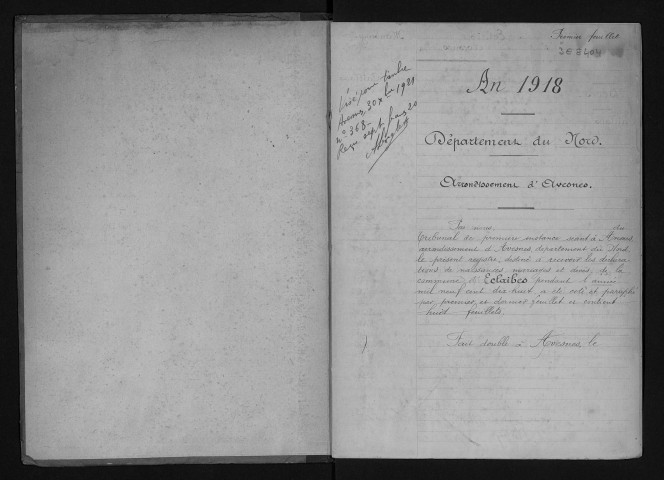 Premier feuillet
3 E 2404
Visé pour timbre
Avesnes, 30 Xbre 1921
n° 368
Reçu sept francs 20
An 1918
Département du Nord.
Arrondissement d'Avesnes.
Par nous, du
tribunal de première instance séant à Avesnes
arrondissement d'Avesnes, département du Nord
le présent registre, destiné à recevoir les déclara-
tions de naissances, mariages et décès, de la
commune d'Eclaibes pendant l'année
mil neuf cent dix-huit, a été coté et paraphé
par premier et dernier feuillet et contient
huit feuillets.
Fait double à Avesnes, le